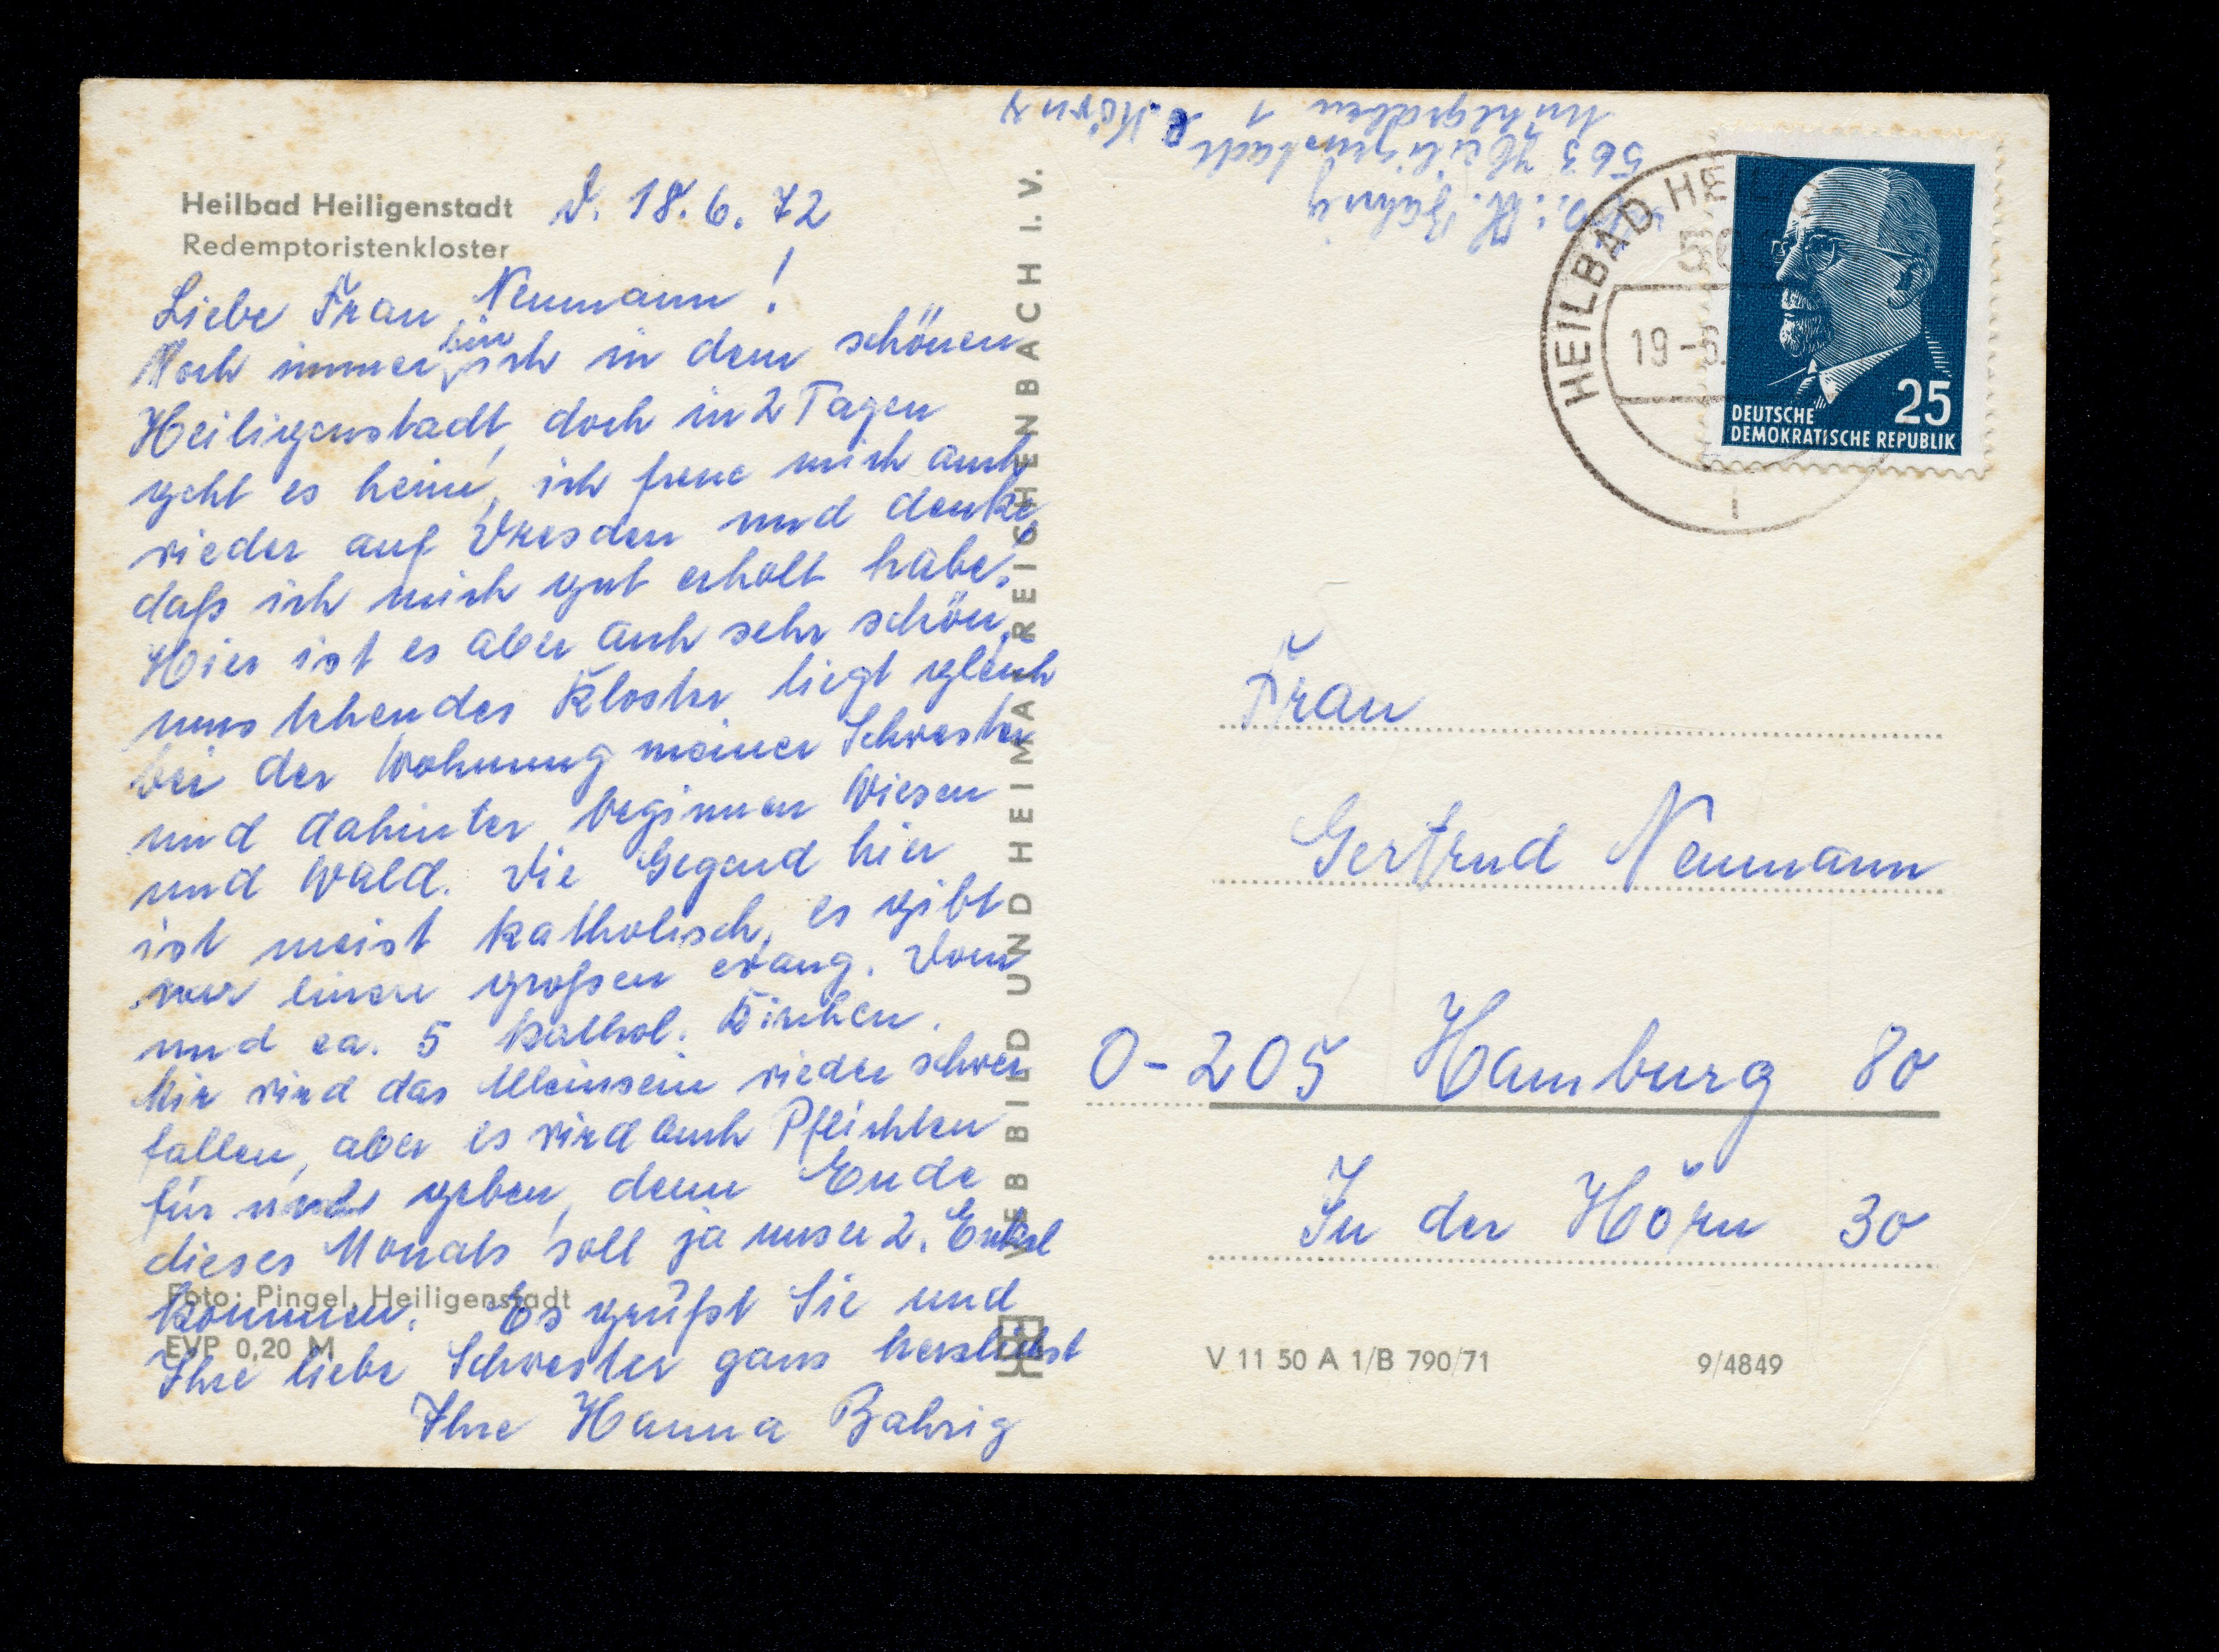 Heilbad Heiligenstadt
Redemptoristenkloster
d. 18. 6. 72
Liebe Frau Neumann!
Noch immer bin ich in dem schönen
Heiligenstadt, doch in 2 Tagen
geht es heim, ich freue mich auch
wieder auf Dresden und denke,
daß ich mich gut erholt habe.
Hier ist es aber auch sehr schön,
umstehendes Kloster liegt gleich
bei der Wohnung meiner Schwester
und dahinter beginnen Wiesen
und Wald. Die Gegend hier
ist meist katholisch, es gibt
nur einen großen evang. Dom
und ca. 5 kathol. Kirchen.
Mir wird das Alleinsein wieder schwer
fallen, aber es wird auch Pflichten
für mich geben, denn Ende
dieses Monats soll ja unser 2. Enkel
kommen. Es grüßt Sie und
Ihre liebe Schwester ganz herzlichst
Ihre Hanna Bahrig
Foto: Pingel, Heiligenstadt
EVP 0,20 M
VEB BILD UND HEIMAT REICHENBACH I. V.
H. Bahrig
563 Heiligenstadt
Mühlgraben 1
HEILBAD HEI
19-6.
25
DEUTSCHE
DEMOKRATISCHE REPUBLIK
Frau
Gertrud Neumann
0-205 Hamburg 80
In der Hörn 30
V 11 50 A 1/B 790/71
9/4849